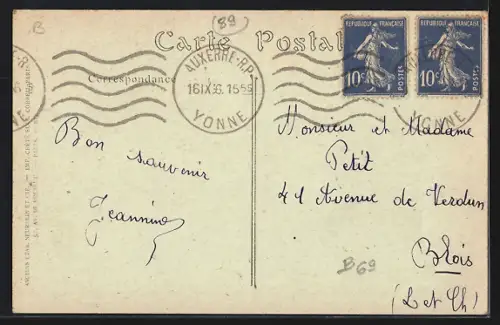 B
(89)
Carte Postale
Correspondance
AUXERRE-RP
16 IX 36. 15 55
YONNE
REPUBLIQUE FRANÇAISE
10c
POSTES
REPUBLIQUE FRANÇAISE
10c
POSTES
YONNE
Bon souvenir
Jeannine
Monsieur et Madame
Petit
41 Avenue de Verdun
Blois
(L et Ch)
B69